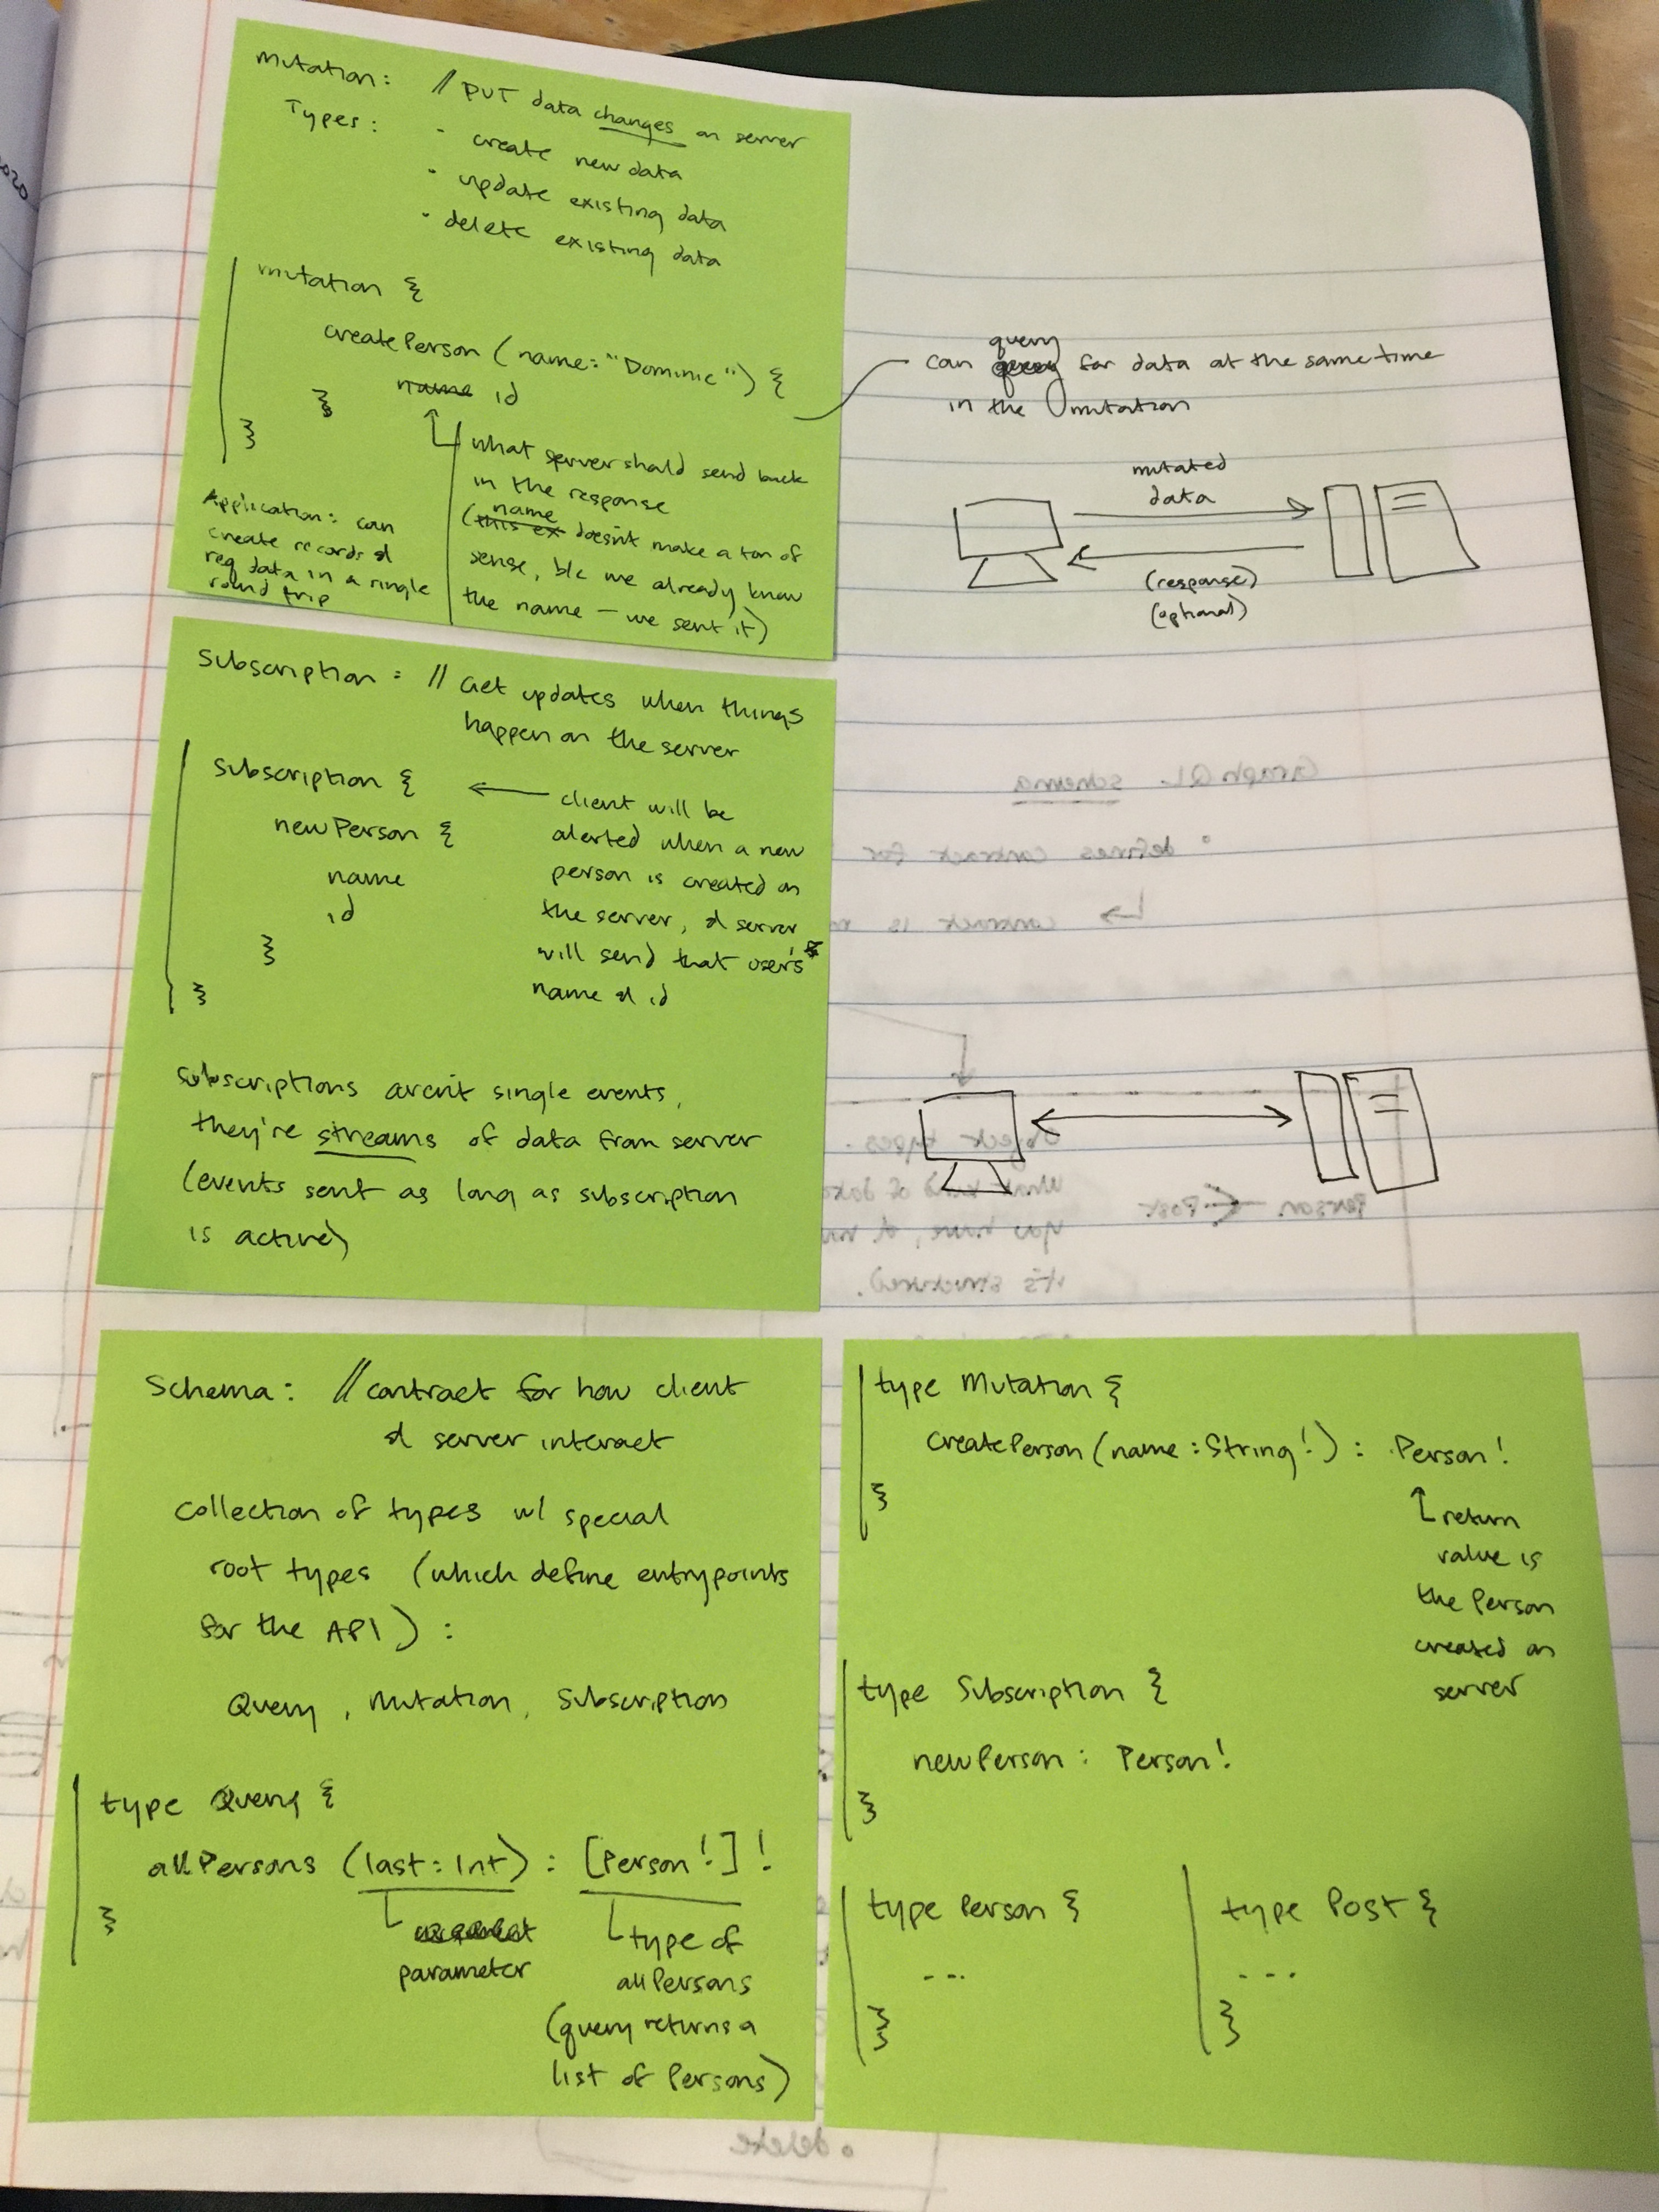 mutation: // PUT data changes on server
Types: · create new data
· update existing data
· delete existing data
mutation {
createPerson (name: "Dominic") {
name id
}
}
what server should send back
in the response
name
(this ex doesn't make a ton of
sense, b/c we already know
the name — we sent it)
Application: can
create records &
req data in a single
round trip
query
can for data at the same time
in the mutation
mutated
data
(response)
(optional)
Subscription: // Get updates when things
happen on the server
subscription {
newPerson {
name
id
}
}
client will be
alerted when a new
person is created on
the server, & server
will send that user's
name & id
subscriptions aren't single events,
they're streams of data from server
(events sent as long as subscription
is active)
GraphQL schema
• defines contract for
↳ contract is
Object types.
what kind of data
you have, &
it's structured).
Person ← Post
Schema: // contract for how client
& server interact
collection of types w/ special
root types (which define entrypoints
for the API):
Query, Mutation, Subscription
type Query {
allPersons (last: Int): [Person!]!
}
parameter
type of
allPersons
(query returns a
list of Persons)
type Mutation {
createPerson (name: String!): Person!
}
return
value is
the Person
created on
server
type Subscription {
newPerson: Person!
}
type Person {
...
}
type Post {
...
}
• delete
2020